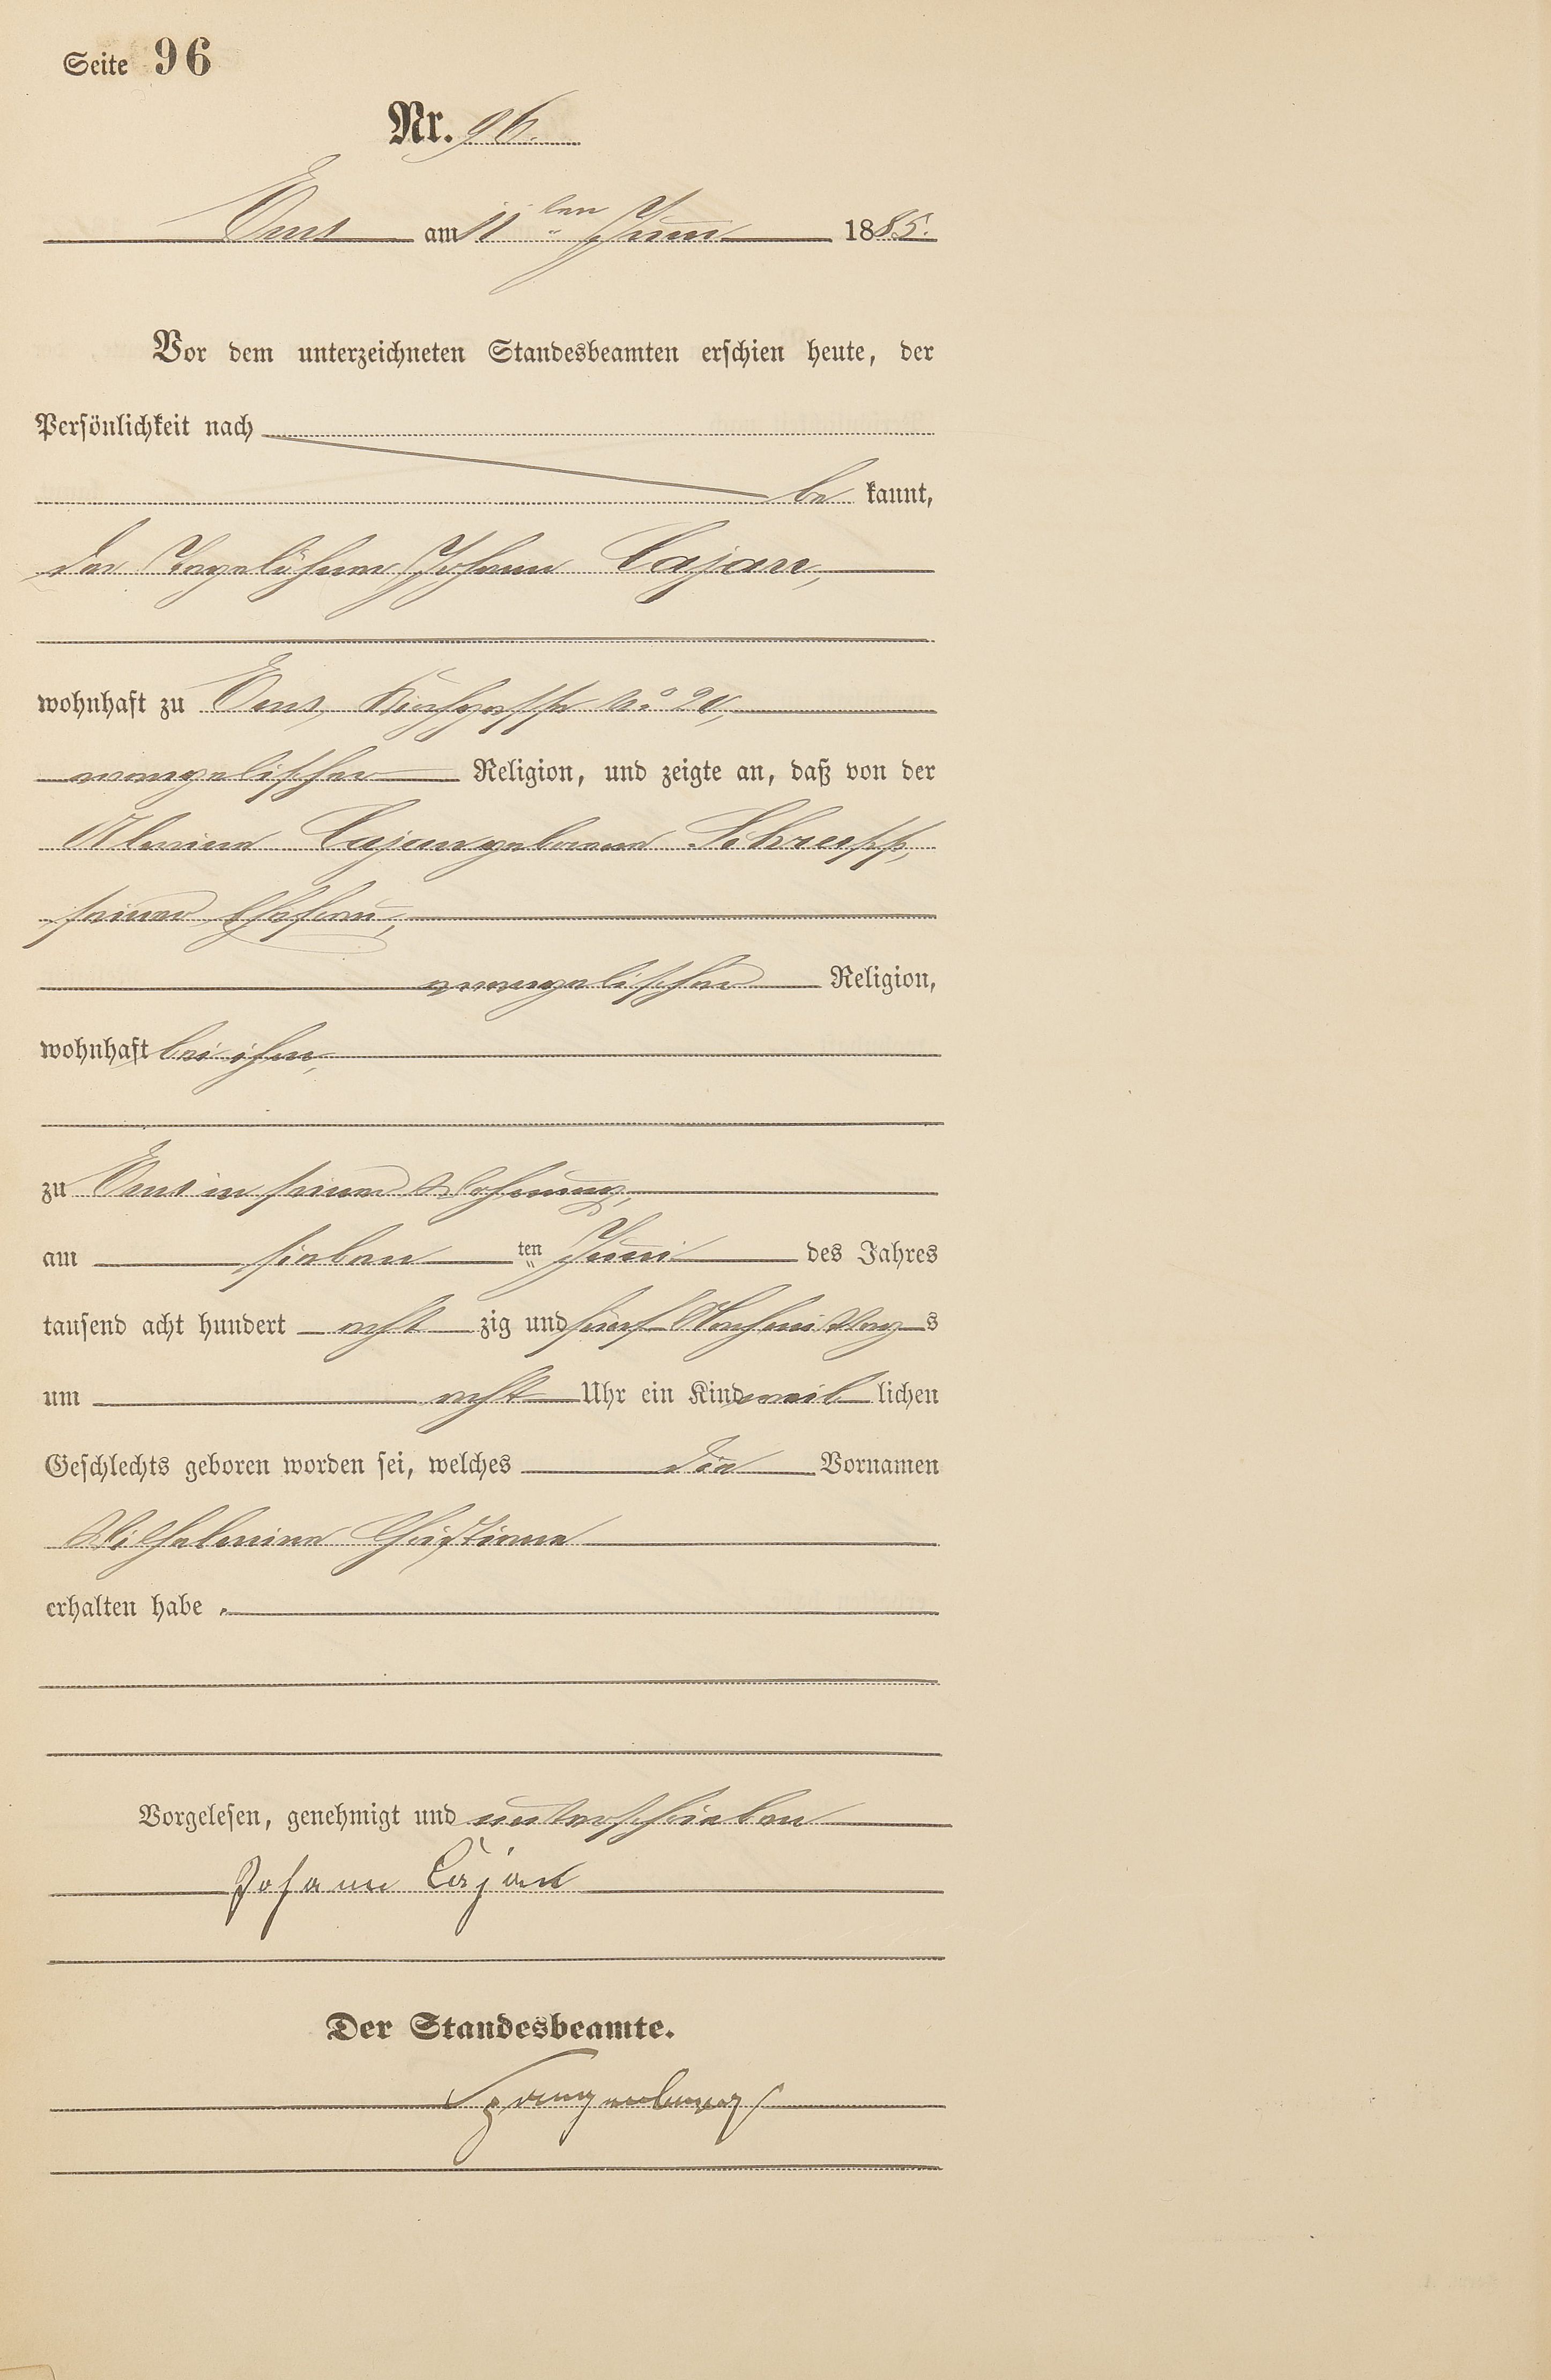 Seite 96
Nr. 96.
Ems am 11ten Juni 1885.
Vor dem unterzeichneten Standesbeamten erschien heute, der
Persönlichkeit nach
be kannt,
der Tagelöhner Johann Cajan,
wohnhaft zu Ems, Kirchgasse No 20,
evangelischer Religion, und zeigte an, daß von der
Cajan geborene Schrupp,
seiner Ehefrau,
evangelischer Religion,
wohnhaft bei ihm,
zu Ems in seiner Wohnung,
am sieben ten Juni des Jahres
tausend acht hundert acht zig und fünf Nachmittags
um acht Uhr ein Kind weib lichen
Geschlechts geboren worden sei, welches die Vornamen
Wilhelmine Christiane
erhalten habe.
Vorgelesen, genehmigt und unterschrieben
Johann Cajan
Der Standesbeamte.
Spangenberg